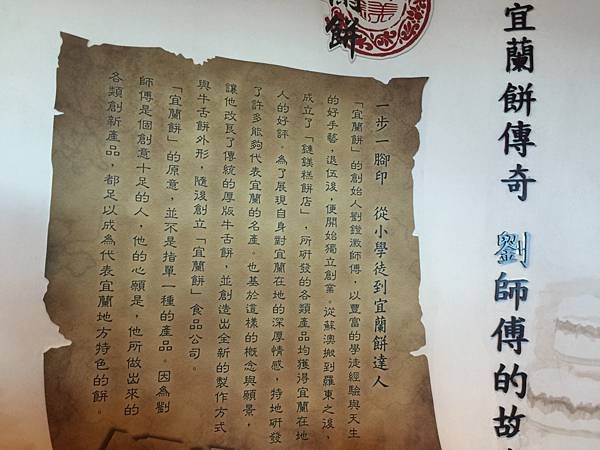 宜蘭餅傳奇 劉師傅的故
蘭餅
一步一腳印 從小學徒到宜蘭餅達人
「宜蘭餅」的創始人劉鐙徽師傅，以豐富的學徒經驗與天生
的好手藝，退伍後，便開始獨立創業。從蘇澳搬到羅東之後，
成立了「鏈鎂糕餅店」，所研發的各類產品均獲得宜蘭在地
人的好評。為了展現自身對宜蘭在地的深厚情感，特地研發
了許多能夠代表宜蘭的名產。也基於這樣的概念與願景，
讓他改良了傳統的厚版牛舌餅，並創造出全新的製作方式
與牛舌餅外形，隨後創立「宜蘭餅」食品公司。
「宜蘭餅」的原意，並不是指單一種的產品。因為劉
師傅是個創意十足的人，他的心願是，他所做出來的
各類創新產品，都足以成為代表宜蘭地方特色的餅。